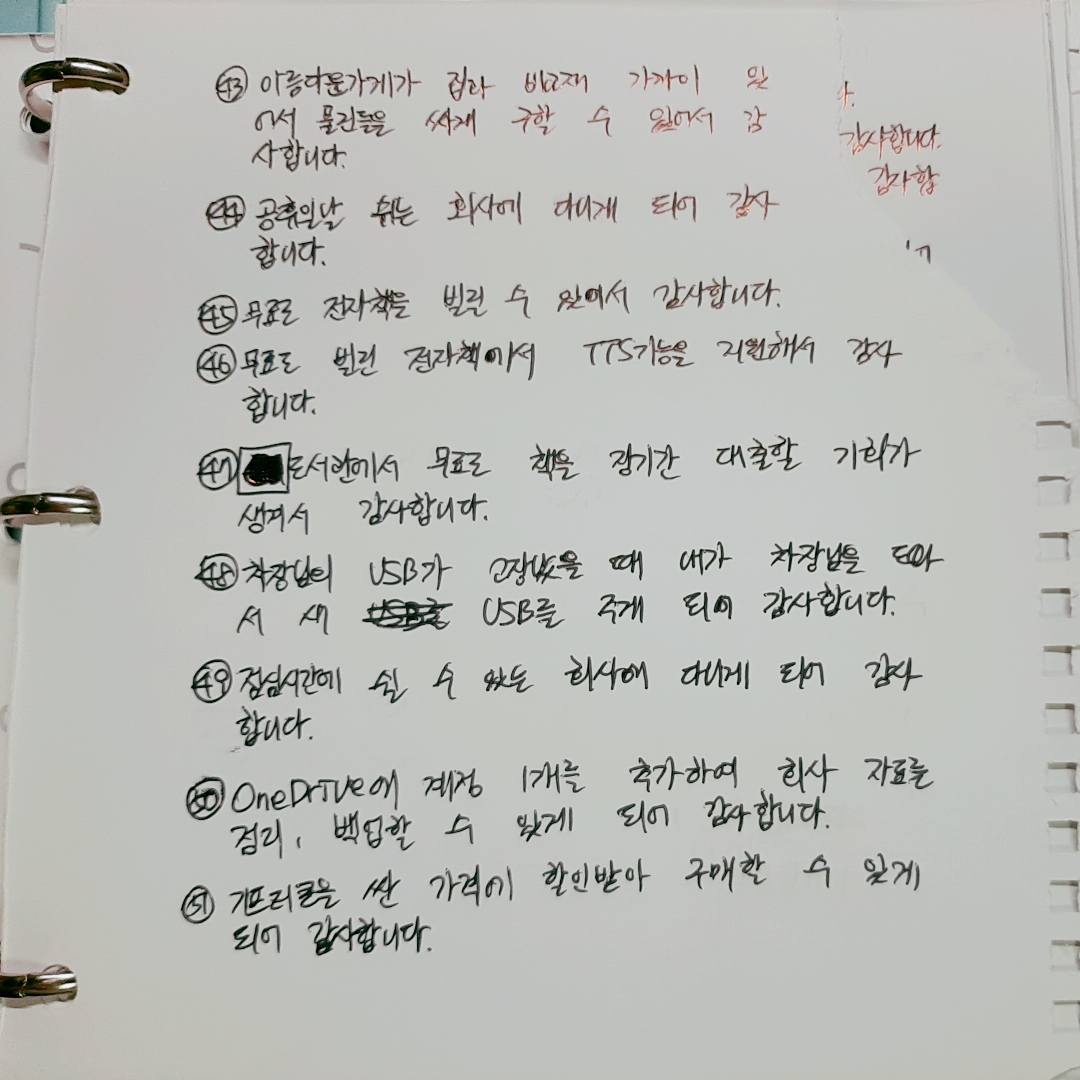 ㊸ 아름다운가게가 집과 비교적 가까이 있
어서 물건들을 싸게 구할 수 있어서 감
사합니다.
㊹ 공휴일날 쉬는 회사에 다니게 되어 감사
합니다.
㊺ 무료로 전자책을 빌릴 수 있어서 감사합니다.
㊻ 무료로 빌린 전자책에서 TTS기능을 지원해서 감사
합니다.
㊼ 도서관에서 무료로 책을 장기간 대출할 기회가
생겨서 감사합니다.
㊽ 차장님의 USB가 고장났을 때 내가 차장님을 도와
서 새 USB를 주게 되어 감사합니다.
㊾ 점심시간에 쉴 수 있는 회사에 다니게 되어 감사
합니다.
㊿ OneDrive에 계정 1개를 추가하여 회사 자료를
정리, 백업할 수 있게 되어 감사합니다.
(51) 기프티콘을 싼 가격에 할인받아 구매할 수 있게
되어 감사합니다.
감사합니다.
감사합